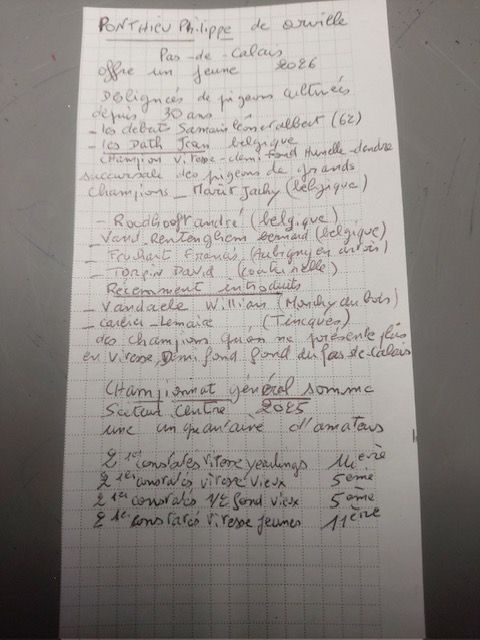 PONTHIEU Philippe de orville
Pas-de-Calais
offre un jeune 2026
Deslignées de pigeons cultivés
depuis 30 ans
- les debats Samain léon et albert (62)
- les Dath Jean belgique
champion vitesse-demi fond Hunelle-dendre
succursale des pigeons de grands
champions _ jacky (belgique)
- andré (belgique)
- bernard (belgique)
- Fruchart Francis (Aubigny en artois)
- Torpin David
Recemment introduits
- Vandaele William (Monchy au bois)
- carlier-Lemaire, (Tincques)
des champions qu'on ne présente plus
en vitesse Demi fond fond du pas-de-Calais
Championnat général somme
Secteur Centre 2025
une cinquantaine d'amateurs
2 1er constatés vitesse yearlings 11 ème
2 1er constatés vitesse vieux 5 ème
2 1er constatés 1/2 fond vieux 5 ème
2 1er constatés vitesse jeunes 11 ème